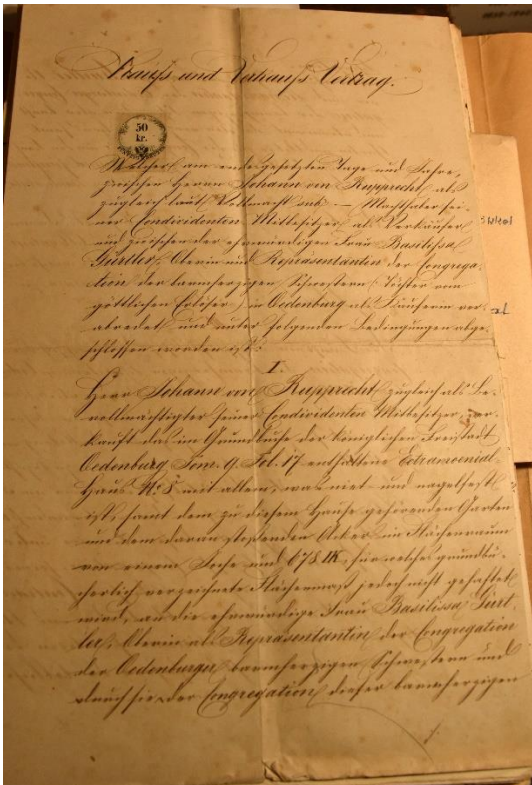 Kaufs und Verkaufs Vertrag.
50
kr.
Welcher am endesgesetzten Tage und Jahre,
zwischen Herrn Johann von Rupprecht als
zugleich laut Vollmacht sub – Machthaber sei-
ner Condividenten Mitbesitzer als Verkäufer
und zwischen der ehrwürdigen Frau Basilissa
Gürtler, Oberin und Repräsentantin der Congrega-
tion der barmherzigen Schwestern Töchter vom
göttlichen Erlöser, in Oedenburg als Käuferin ver-
abredet und unter folgenden Bedingungen abge-
schlossen worden ist:
I.
Herr Johann von Rupprecht zugleich als Be-
vollmächtigter seiner Condividenten Mitbesitzer, ver-
kauft das im Grundbuche der königlichen Freistadt
Oedenburg Tom. 9. Fol. 17 enthaltene Extramoenial-
Haus No 8 mit allem, was niet- und nagelfest
ist, samt dem zu diesem Hause gehörenden Garten
und dem daran stoßenden Acker im Flächenraum
von einem Joche und 678 für welches grundbü-
cherlich verzeichnete Flächenmaß jedoch nicht gehaftet
wird, an die ehrwürdige Frau Basilissa Gürt-
ler, Oberin als Repräsentantin der Congregation
der Oedenburger barmherzigen Schwestern und
durch sie der Congregation dieser barmherzigen